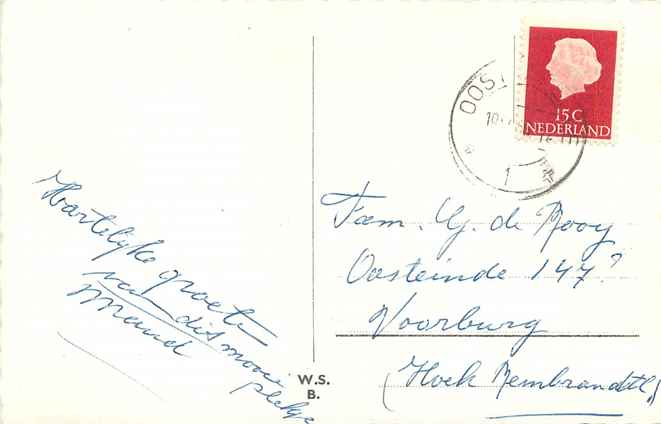 Hartelijke groeten
van dit mooie
plekje
OOST
1
15 C
NEDERLAND
Fam. G. de Rooy
Oosteinde 147?
Voorburg
(Hoek Rembrandtl.)
W.S.
B.